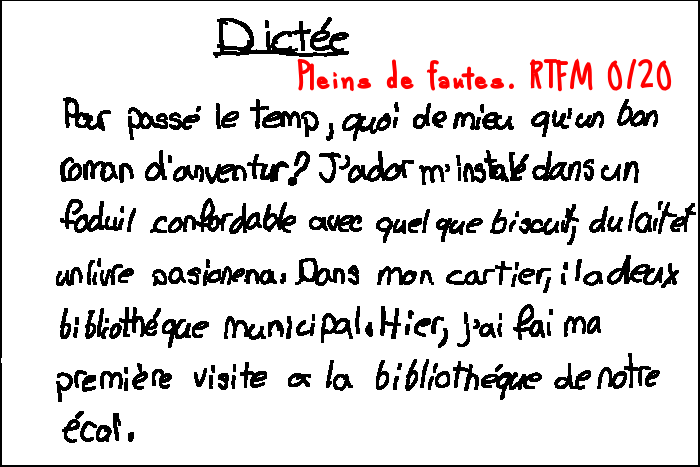 Dictée
Pleins de fautes. RTFM 0/20
Pour passé le temp, quoi de mieu qu'un bon
roman d'anventur? J'ador m'instalé dans un
foduil confordable avec quel que biscuit, du lait et
un livre pasionena. Dans mon cartier, il a deux
bibliothéque municipal. Hier, j'ai fai ma
première visite a la bibliothéque de notre
écol.